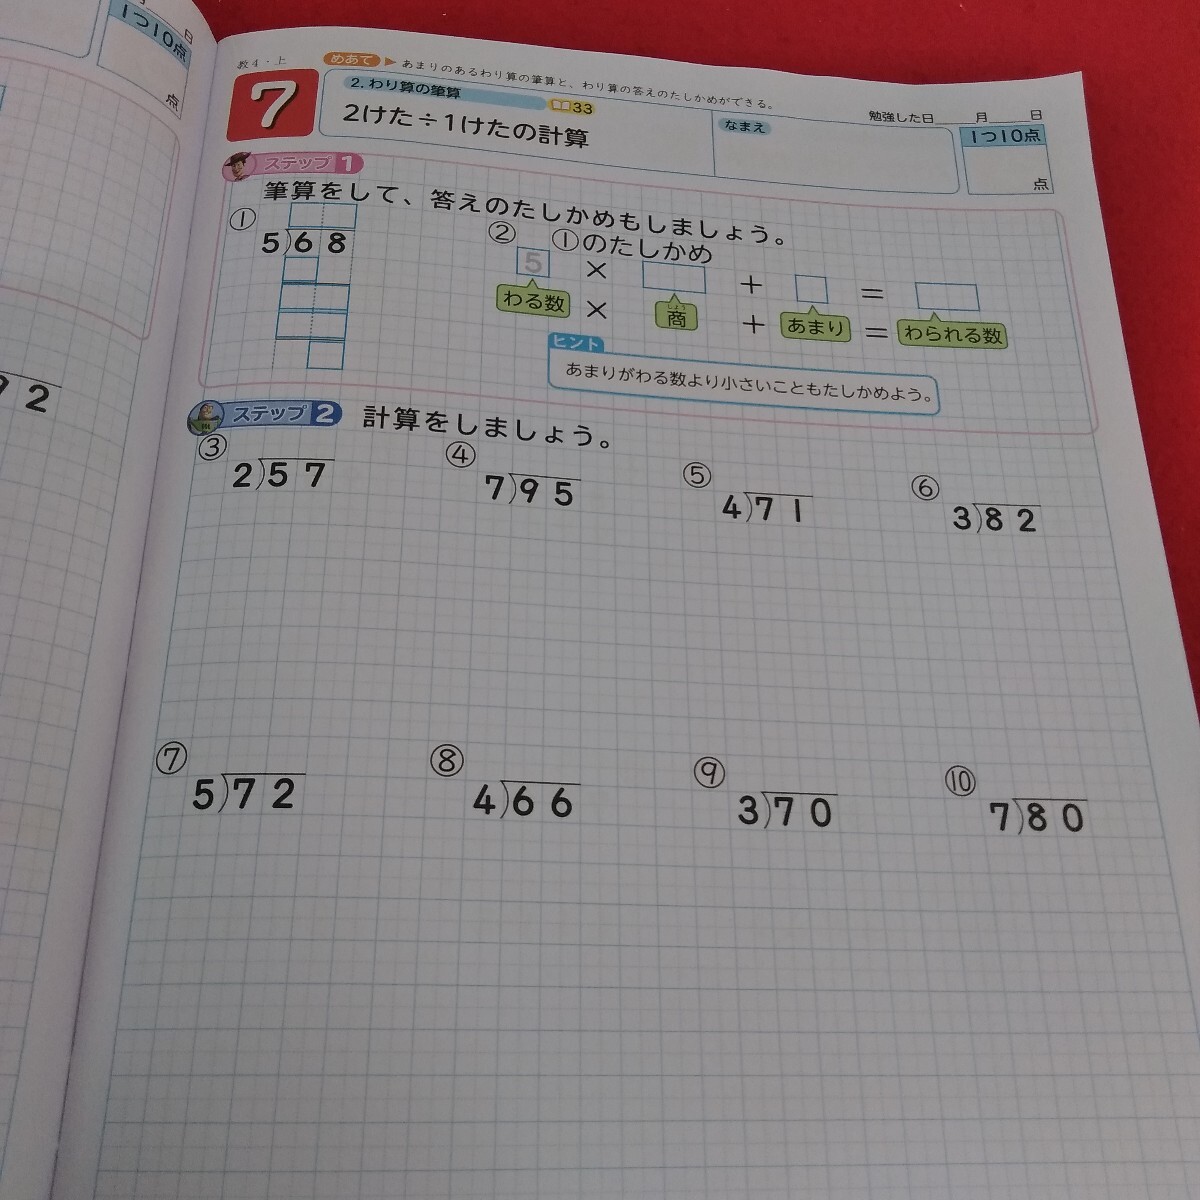 日
1つ10点
点
92
教4・上
めあて ▶ あまりのあるわり算の筆算と、わり算の答えのたしかめができる。
7
2. わり算の筆算
33
2けた÷1けたの計算
なまえ
勉強した日 月 日
1つ10点
点
ステップ 1
筆算をして、答えのたしかめもしましょう。
① 5)68
② ①のたしかめ
5 × + =
わる数 × 商 + あまり = わられる数
しょう
ヒント
あまりがわる数より小さいこともたしかめよう。
ステップ 2 計算をしましょう。
③ 2)57
④ 7)95
⑤ 4)71
⑥ 3)82
⑦ 5)72
⑧ 4)66
⑨ 3)70
⑩ 7)80